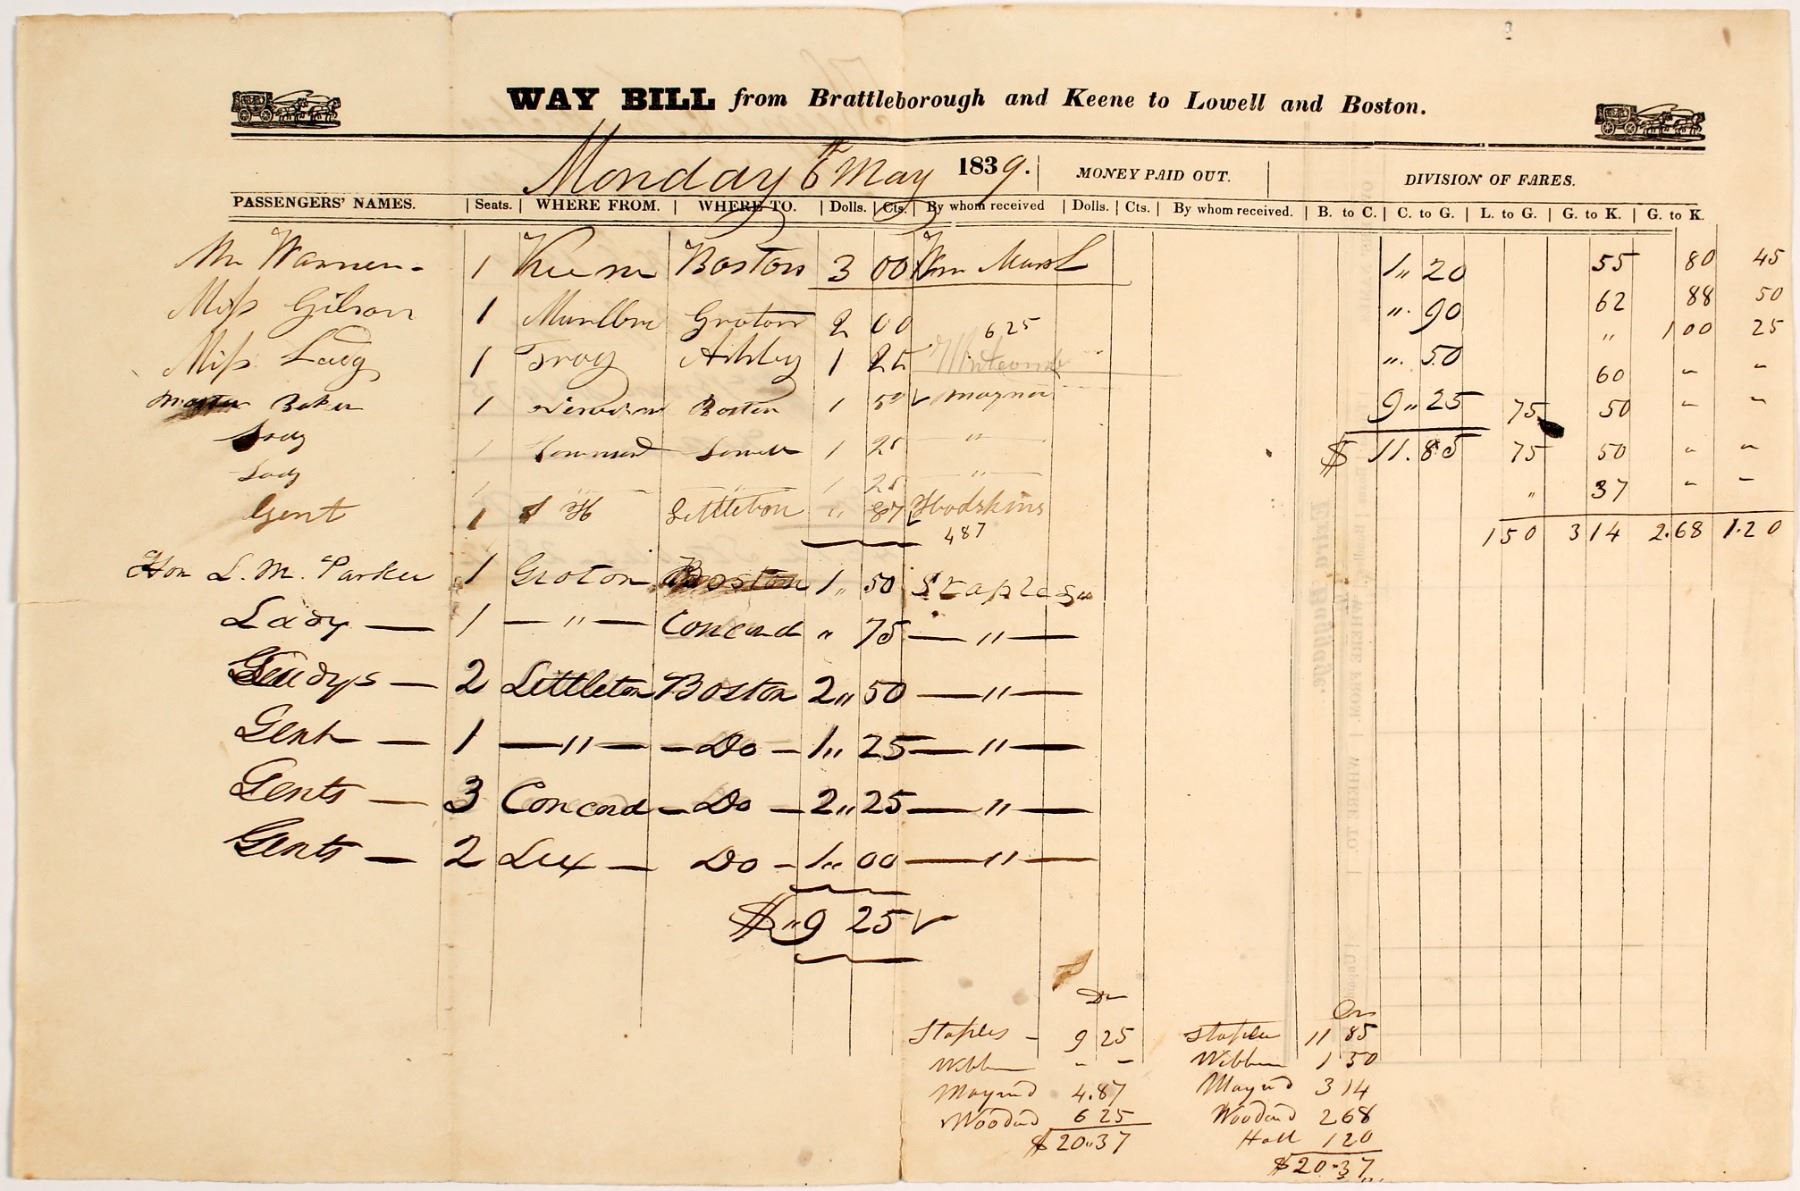 WAY BILL from Brattleborough and Keene to Lowell and Boston.
Monday 6th May 1839. MONEY PAID OUT. DIVISION OF FARES.
PASSENGERS' NAMES. Seats. WHERE FROM. WHERE TO. Dolls. Cts. By whom received Dolls. Cts. By whom received. B. to C. C. to G. L. to G. G. to K. G. to K.
Mr Warren - 1 Keene Boston 3 00 1,, 20 55 80 45
Miss Gilson 1 Marlbro Groton 2 00 ,, 90 62 88 50
6 25
Miss Lady 1 Troy Ashby 1 25 ,, 50 ,, 1 00 25
60 - -
Master Baker 1 Boston 1 50 Maynard 9,, 25 75 50 - -
Lady 1 Townsend Lowell 1 25 ,, $ 11.85 75 50 - -
Lady 1 ,, ,, 1 25 ,, ,, 37 - -
Gent 1 Littleton ,, 87 Hodskins 1 50 3 14 2.68 1.20
4 87
Hon L. M. Parker 1 Groton Boston 1,, 50 Staples,,
Lady — 1 — ,, — Concord ,, 75 — ,, —
Ladys — 2 Littleton Boston 2,, 50 — ,, —
Gent — 1 — ,, — — Do — 1,, 25 — ,, —
Gents — 3 Concord — Do — 2,, 25 — ,, —
Gents — 2 Lex — Do — 1,, 00 — ,, —
$ ,,9 25
Dr Crs
Staples - 9 25 Staples 11 85
- - 1 50
Maynard 4.87 Maynard 3 14
Woodard 6 25 Woodard 2 68
$ 20,,37 Hall 1 20
$ 20.37